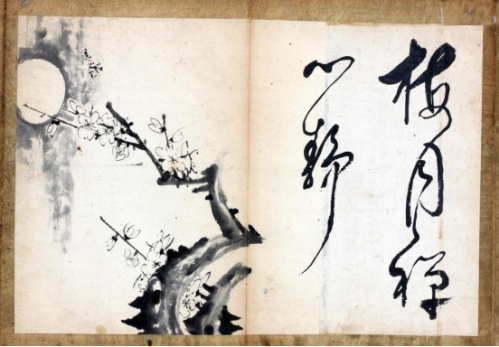 梅月禪
心静